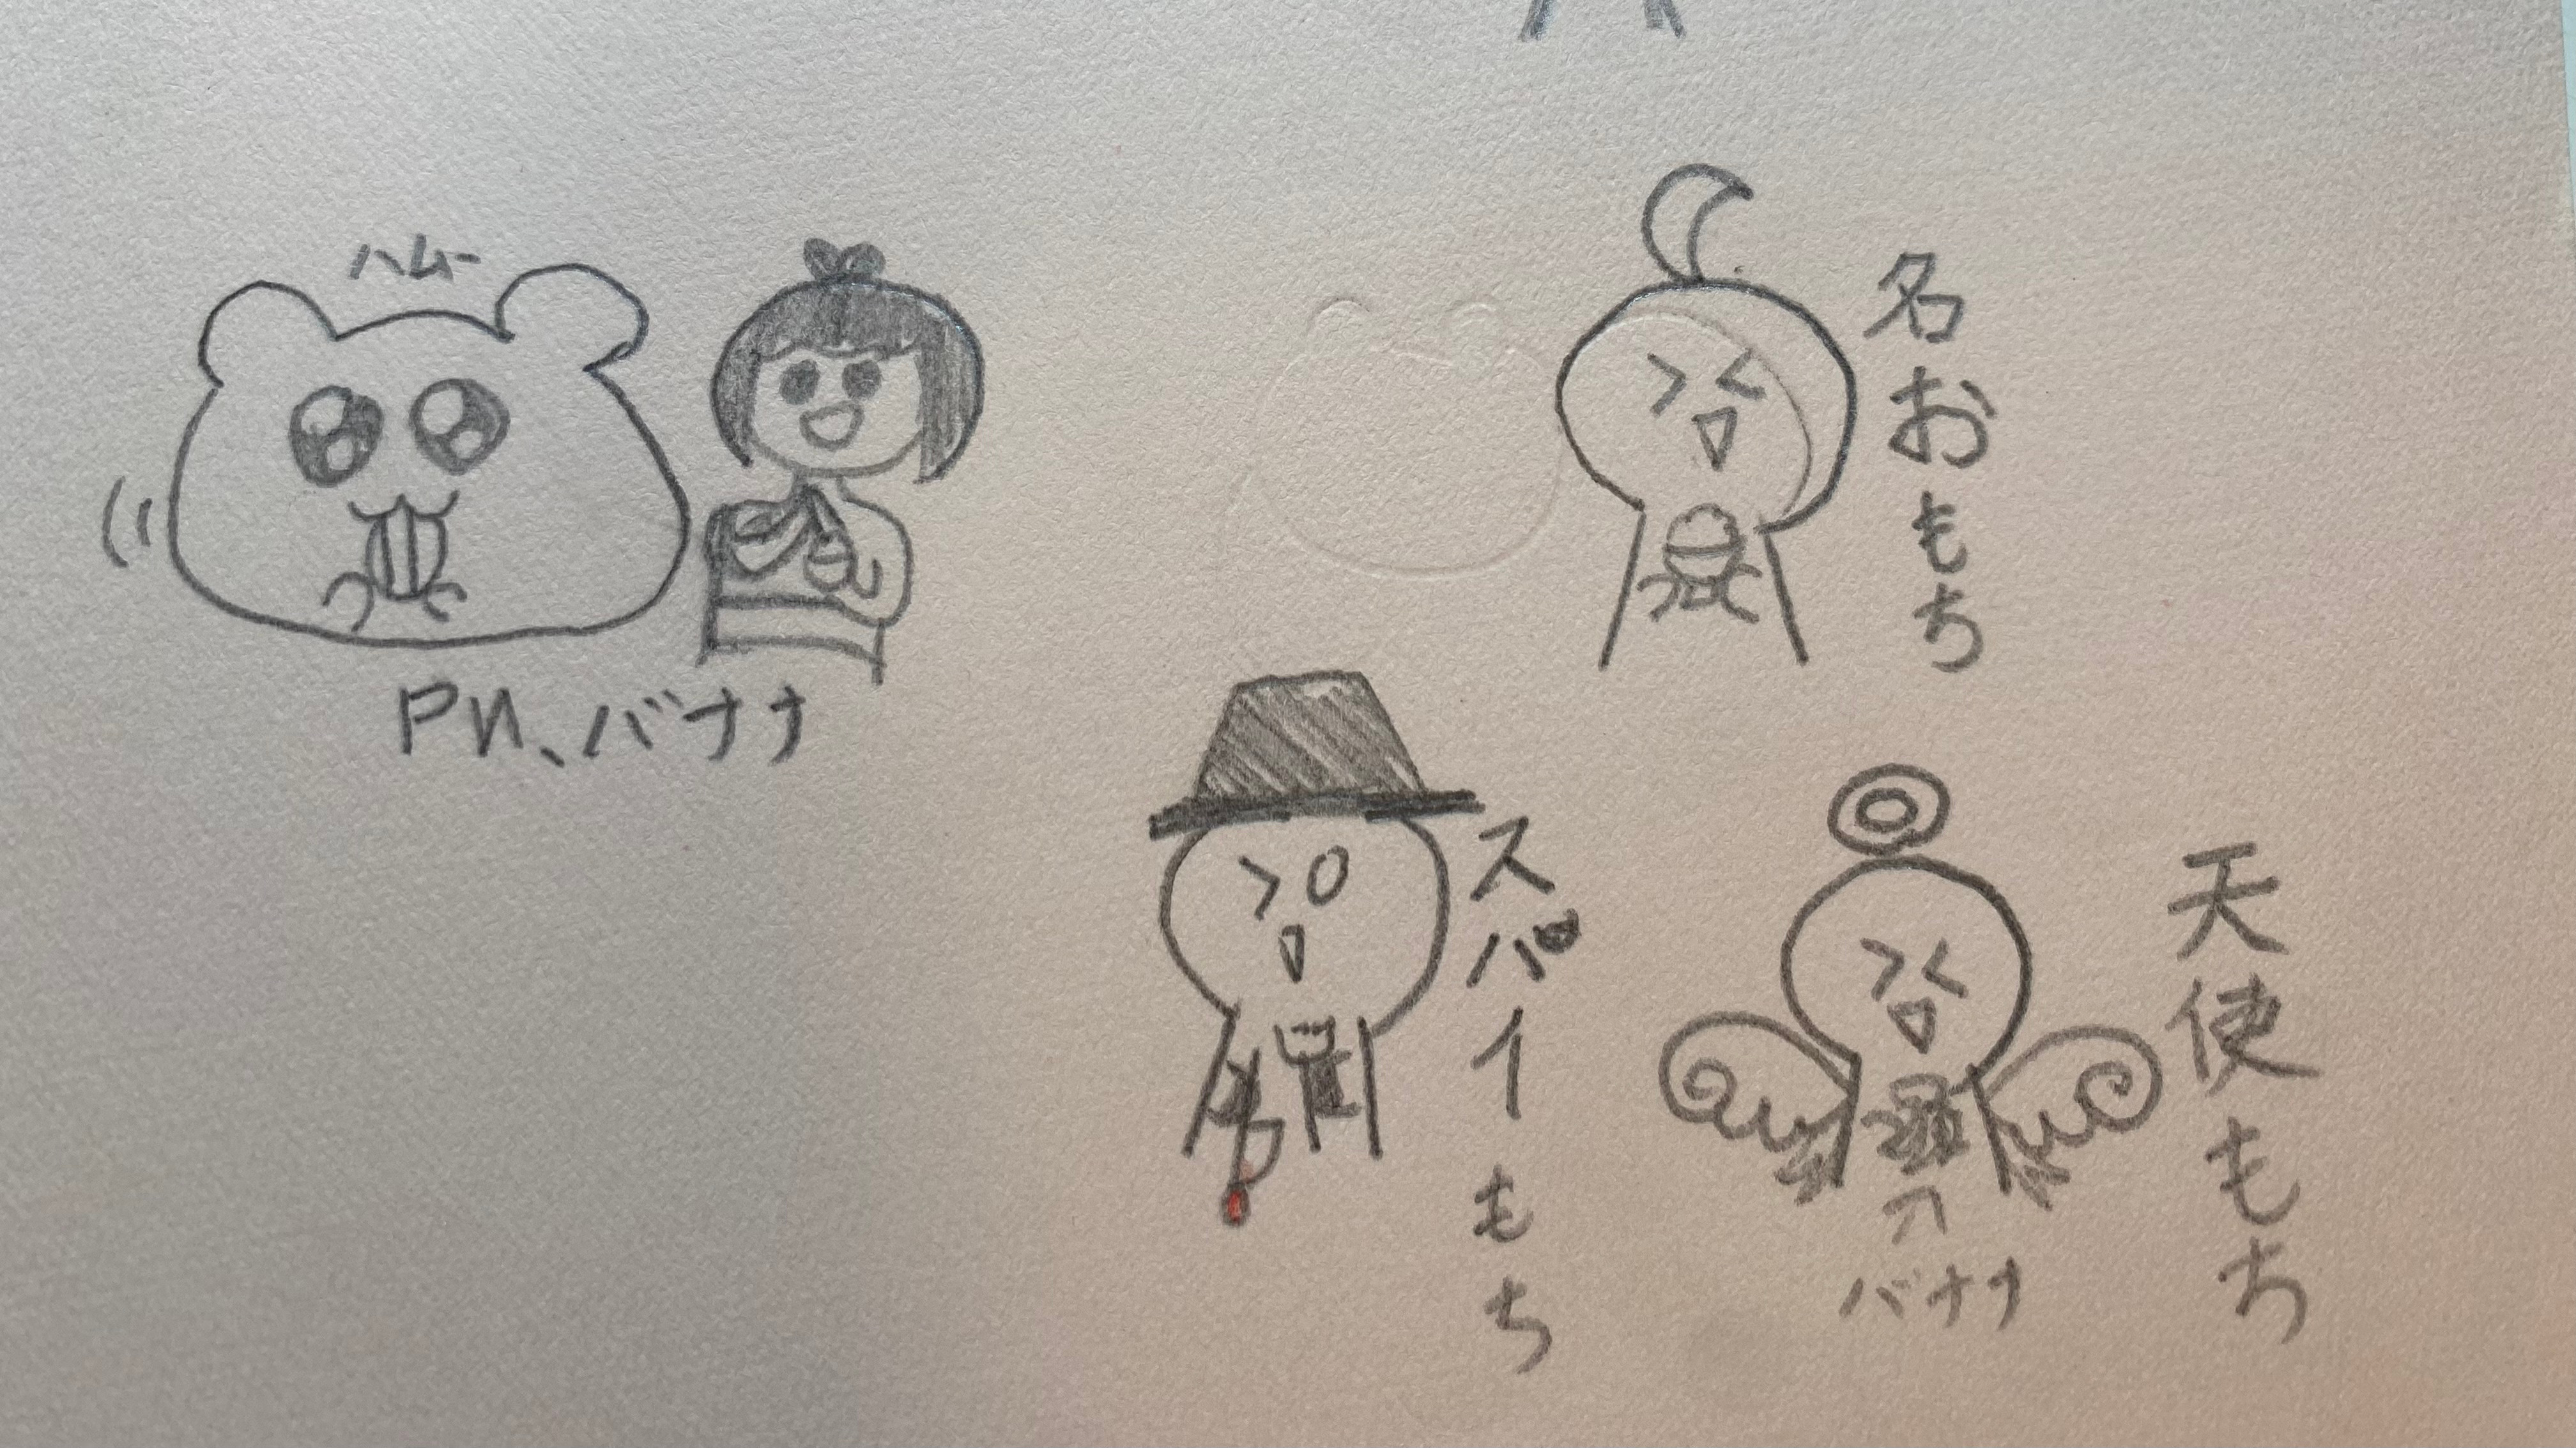 ハムー
PN、バナナ
名おもち
スパイもち
天使もち
バナナ